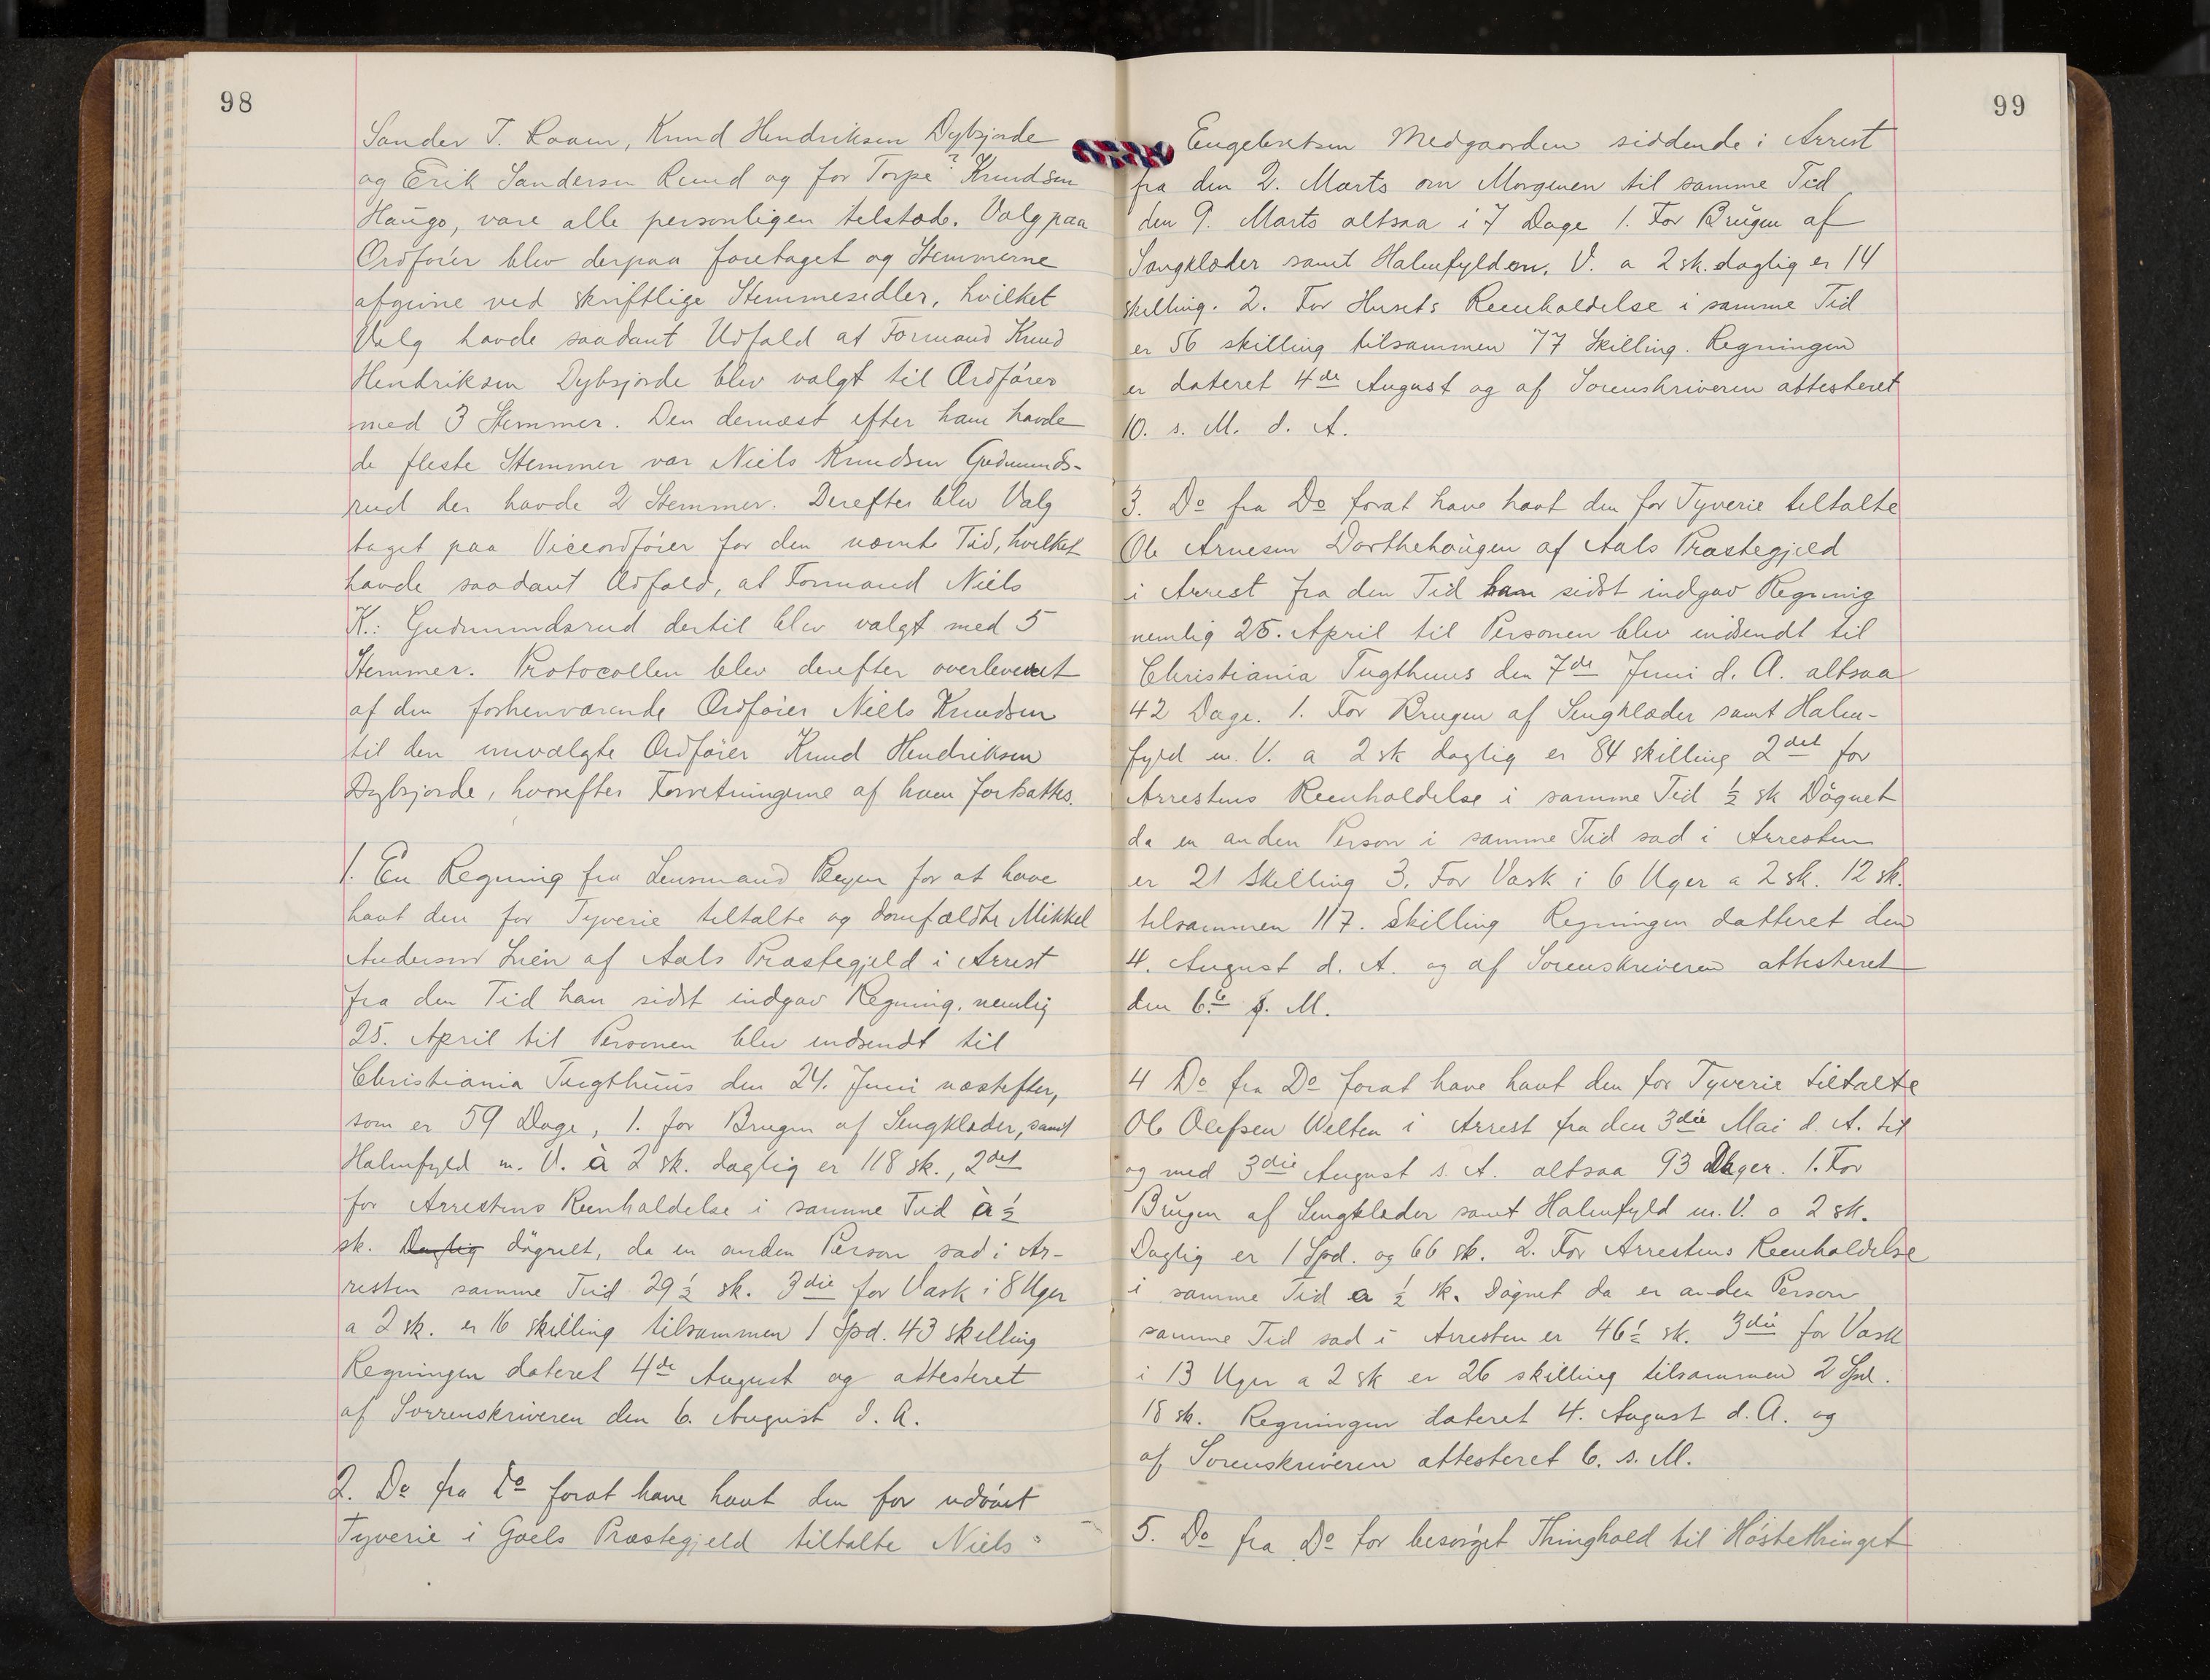 98
Sander T. Raaen, Knud Hendriksen Dybsjorde
og Erik Sandersen Ruud og for Torpe? Knudsen
Haugo, vare alle personligen telstæde. Valg paa
Ordføier blev derpaa foretaget og Stemmerne
afgivne ved skriftlige Stemmesedler, hvilket
Valg havde saadant Udfald at Formand Knud
Hendriksen Dybsjorde blev valgt til Ordfører
med 3 Stemmer. Den dernæst efter ham havde
de fleste Stemmer var Niels Knudsen Gudmunds-
rud der havde 2 Stemmer. Derefter blev Valg
taget paa Viceordføier for den nævnte Tid, hvilket
havde saadant Udfald, at Formand Niels
K.: Gudmundsrud dertil blev valgt med 5
Stemmer. Protocollen blev derefter overleveret
af den forhenværende Ordføier Niels Knudsen
til den nuvalgte Ordføier Knud Hendriksen
Dybsjorde, hvorefter Forretningerne af ham fortsattes.
1. En Regning fra Lensmand for at have
havt den for Tyverie tiltalte og domfældte Mikkel
Andersen Lien af Aals Præstegjeld i Arrest
fra den Tid han sidst indgav Regning, nemlig
25. April til Personen blev indsendt til
Christiania Tugthuus den 24. Juni næstefter,
som er 59 Dage, 1. for Brugen af Sengklæder, samt
Halmfyld m. V. à 2 sk. daglig er 118 sk., 2det
for Arrestens Reenholdelse i samme Tid à ½
sk. Daglig døgnet, da en anden Person sad i Ar-
resten samme Tid 29½ sk. 3die for Vask i 8 Uger
a 2 sk. er 16 skilling tilsammen 1 Spd. 43 skelling
Regningen dateret 4de August og attesteret
af Sorrenskriveren den 6. August d. A.
2. Do fra Do forat have havt den for udøvet
Tyverie i Goels Præstegjeld tiltalte Niels
99
Engebretsen Medgaarden siddende i Arrest
fra den 2. Marts om Morgenen til samme Tid
den 9. Marts altsaa i 7 Dage 1. For Brugen af
Sængklæder samt Halmfylden. V. a 2 sk. daglig er 14
skilling. 2. For Husets Reenholdelse i samme Tid
er 56 skilling tilsammen 77 Skilling. Regningen
er dateret 4de August og af Sorenskriveren attesteret
10. s. M. d. A.
3. Do fra Do forat have havt den for Tyverie tiltalte
Ole Arnesen Dorthehaugen af Aals Præstegjeld
i Arrest fra den Tid han sidst indgav Regning
nemlig 25. April til Personen blev indsendt til
Christiania Tugthuus den 7de Juni d. A. altsaa
42 Dage. 1. For Brugen af Sengklæder samt Halm-
fyld m. V. a 2 sk daglig er 84 skilling 2det for
Arrestens Reenholdelse i samme Tid ½ sk Døgnet
da en anden Person i samme Tid sad i Arresten
er 21 Skelling 3. For Vask i 6 Uger a 2 sk. 12 sk.
tilsammen 117. skilling Regningen datteret den
4. August d. A. og af Sorenskriveren attesteret
den 6.te s. M.
4 Do fra Do forat have havt den for Tyverie tiltalte
Ole Olefsen Welten i Arrest fra den 3die Mai d. A. til
og med 3die August s. A. altsaa 93 Dager. 1. For
Brugen af Sengklæder samt Halmfyld m. V. a 2 sk.
Daglig er 1 Spd. og 66 sk. 2. For Arrestens Reenholdelse
i samme Tid a ½ sk. Døgnet da en anden Person
samme Tid sad i Arresten er 46½ sk. 3die for Vask
i 13 Uger a 2 sk er 26 skilling tilsammen 2 Spd.
18 sk. Regningen dateret 4. August d. A. og
af Sorenskriveren attesteret 6. s. M.
5. Do fra Do for besørget Thinghold til Høstethinget